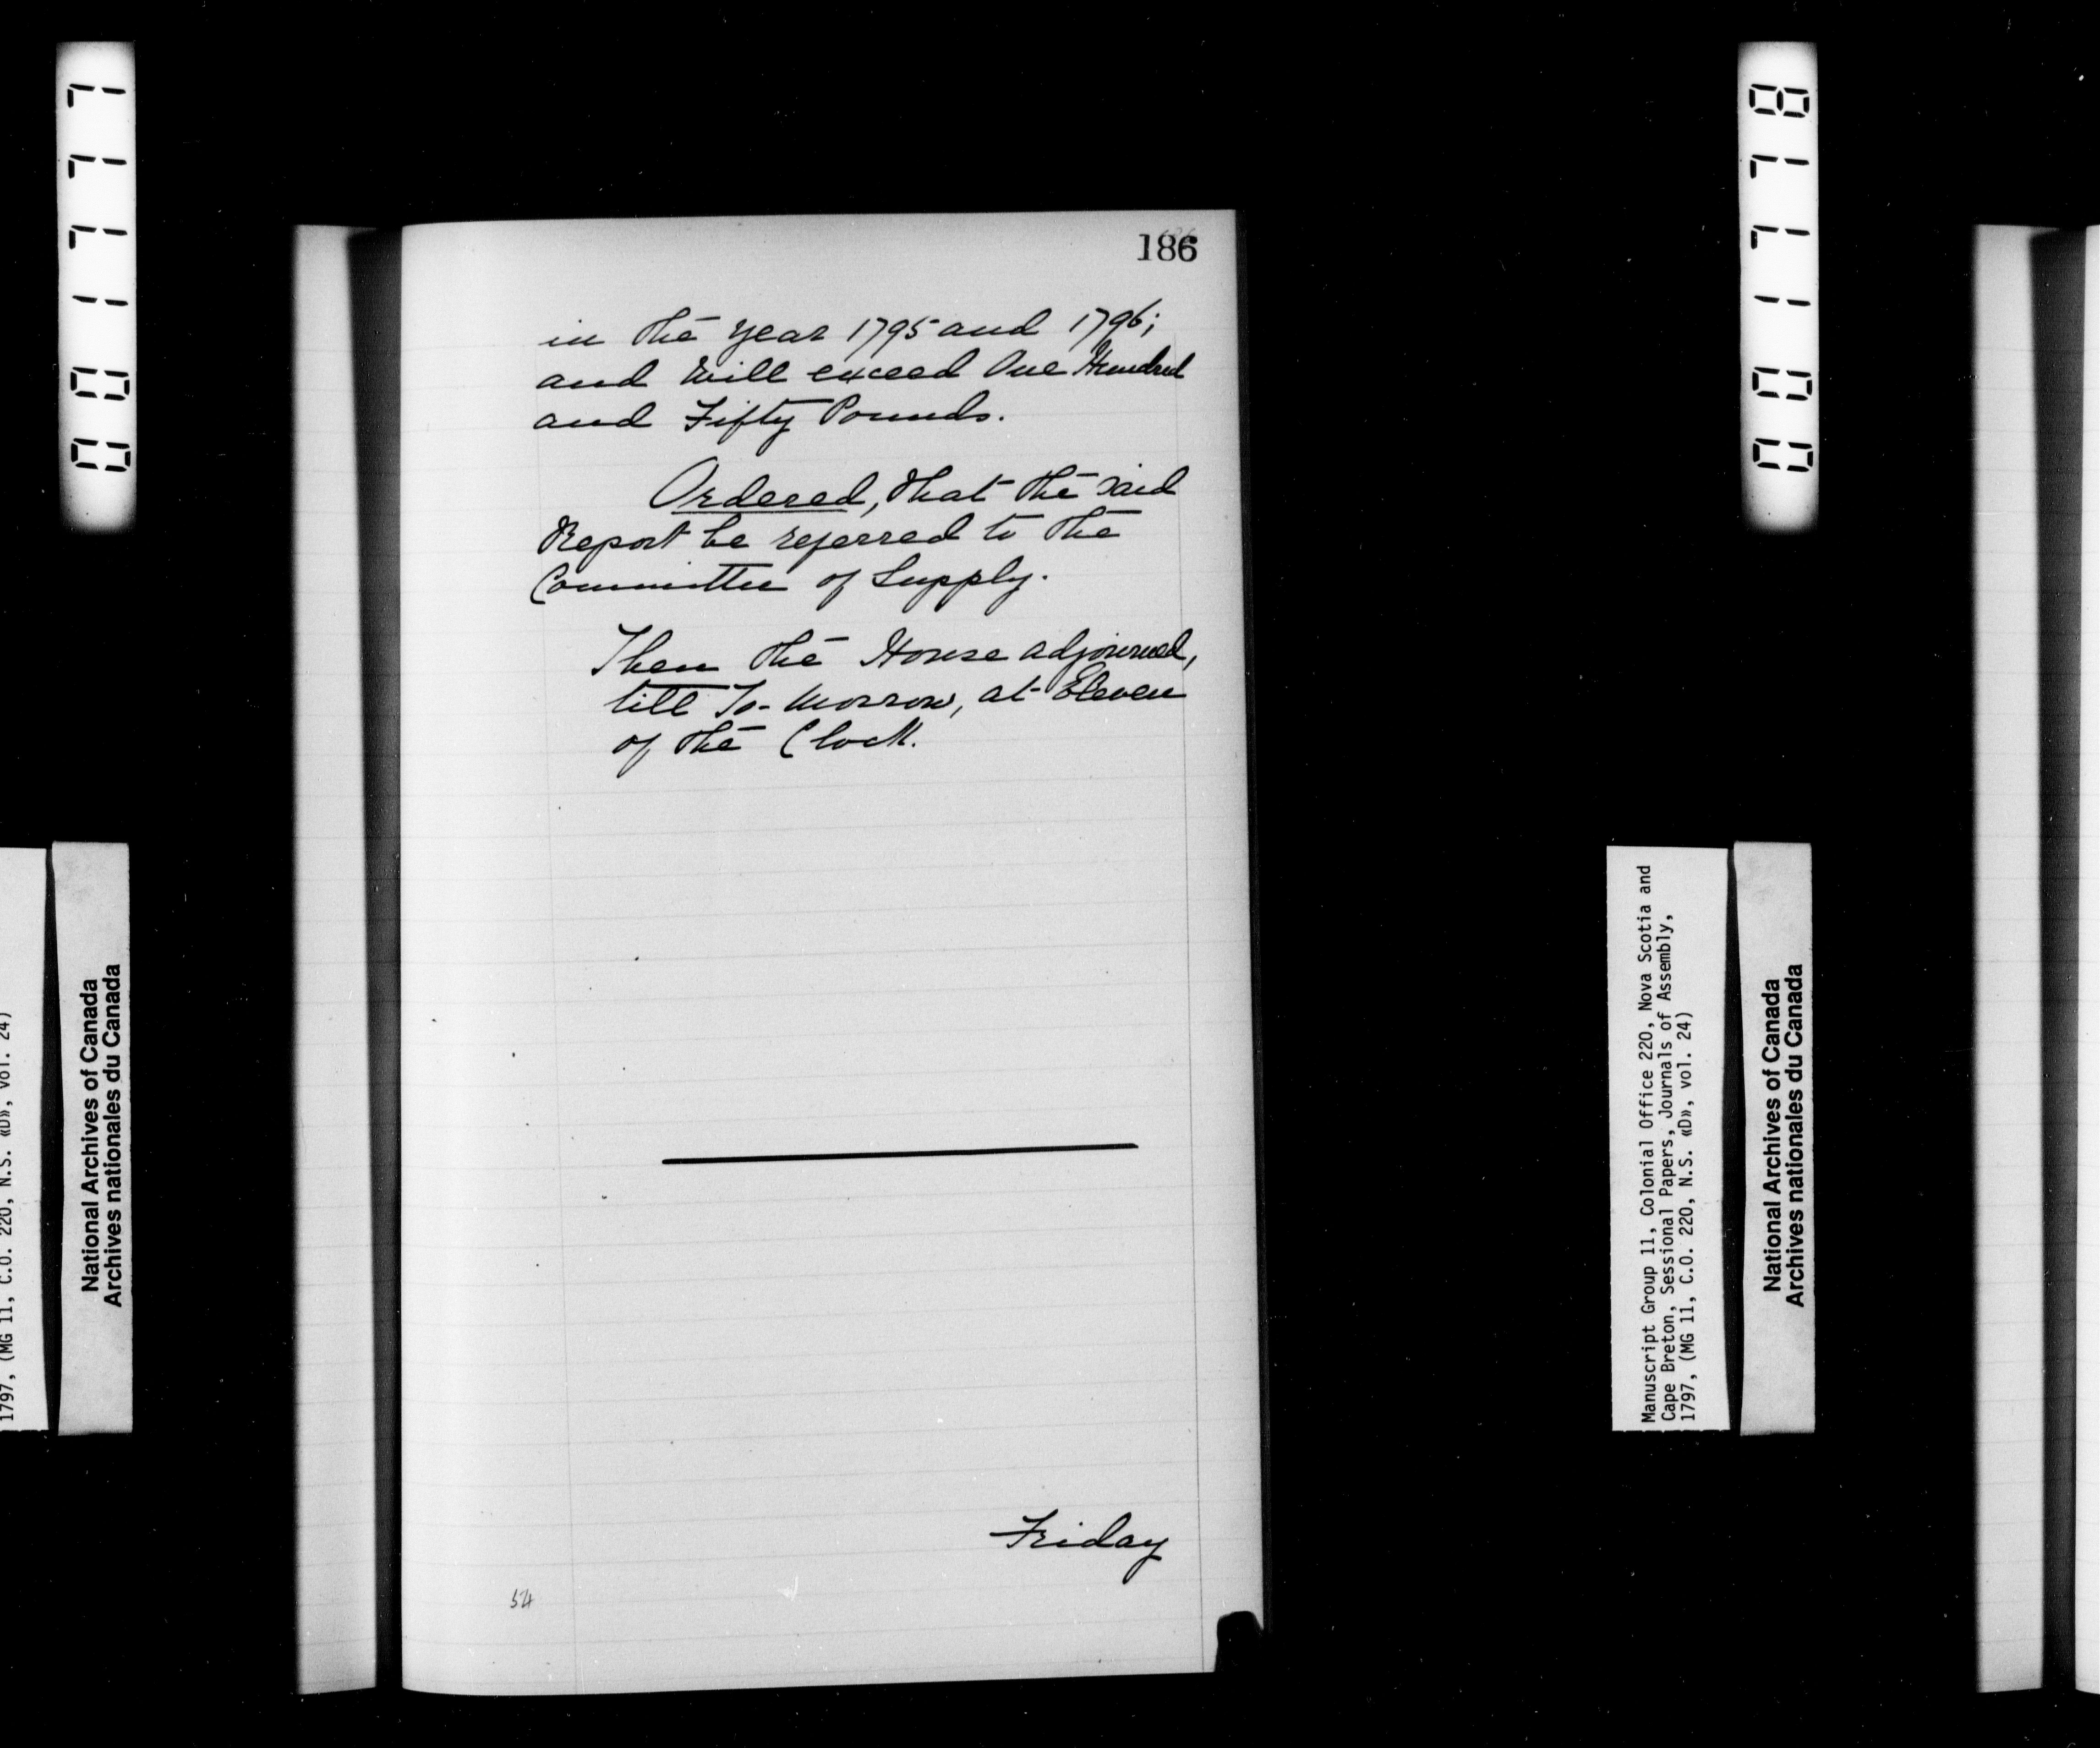 001777
1797, (MG 11, C.O. 220, N.S. «D», vol. 24)
National Archives of Canada
Archives nationales du Canada
186
in the year 1795 and 1796;
and will exceed One Hundred
and Fifty Pounds.
Ordered, that the said
Report be referred to the
Committee of Supply.
Then the House adjourned,
till To-morrow, at Eleven
of the Clock.
Friday
54
001778
Manuscript Group 11, Colonial Office 220, Nova Scotia and
Cape Breton, Sessional Papers, Journals of Assembly,
1797, (MG 11, C.O. 220, N.S. «D», vol. 24)
National Archives of Canada
Archives nationales du Canada